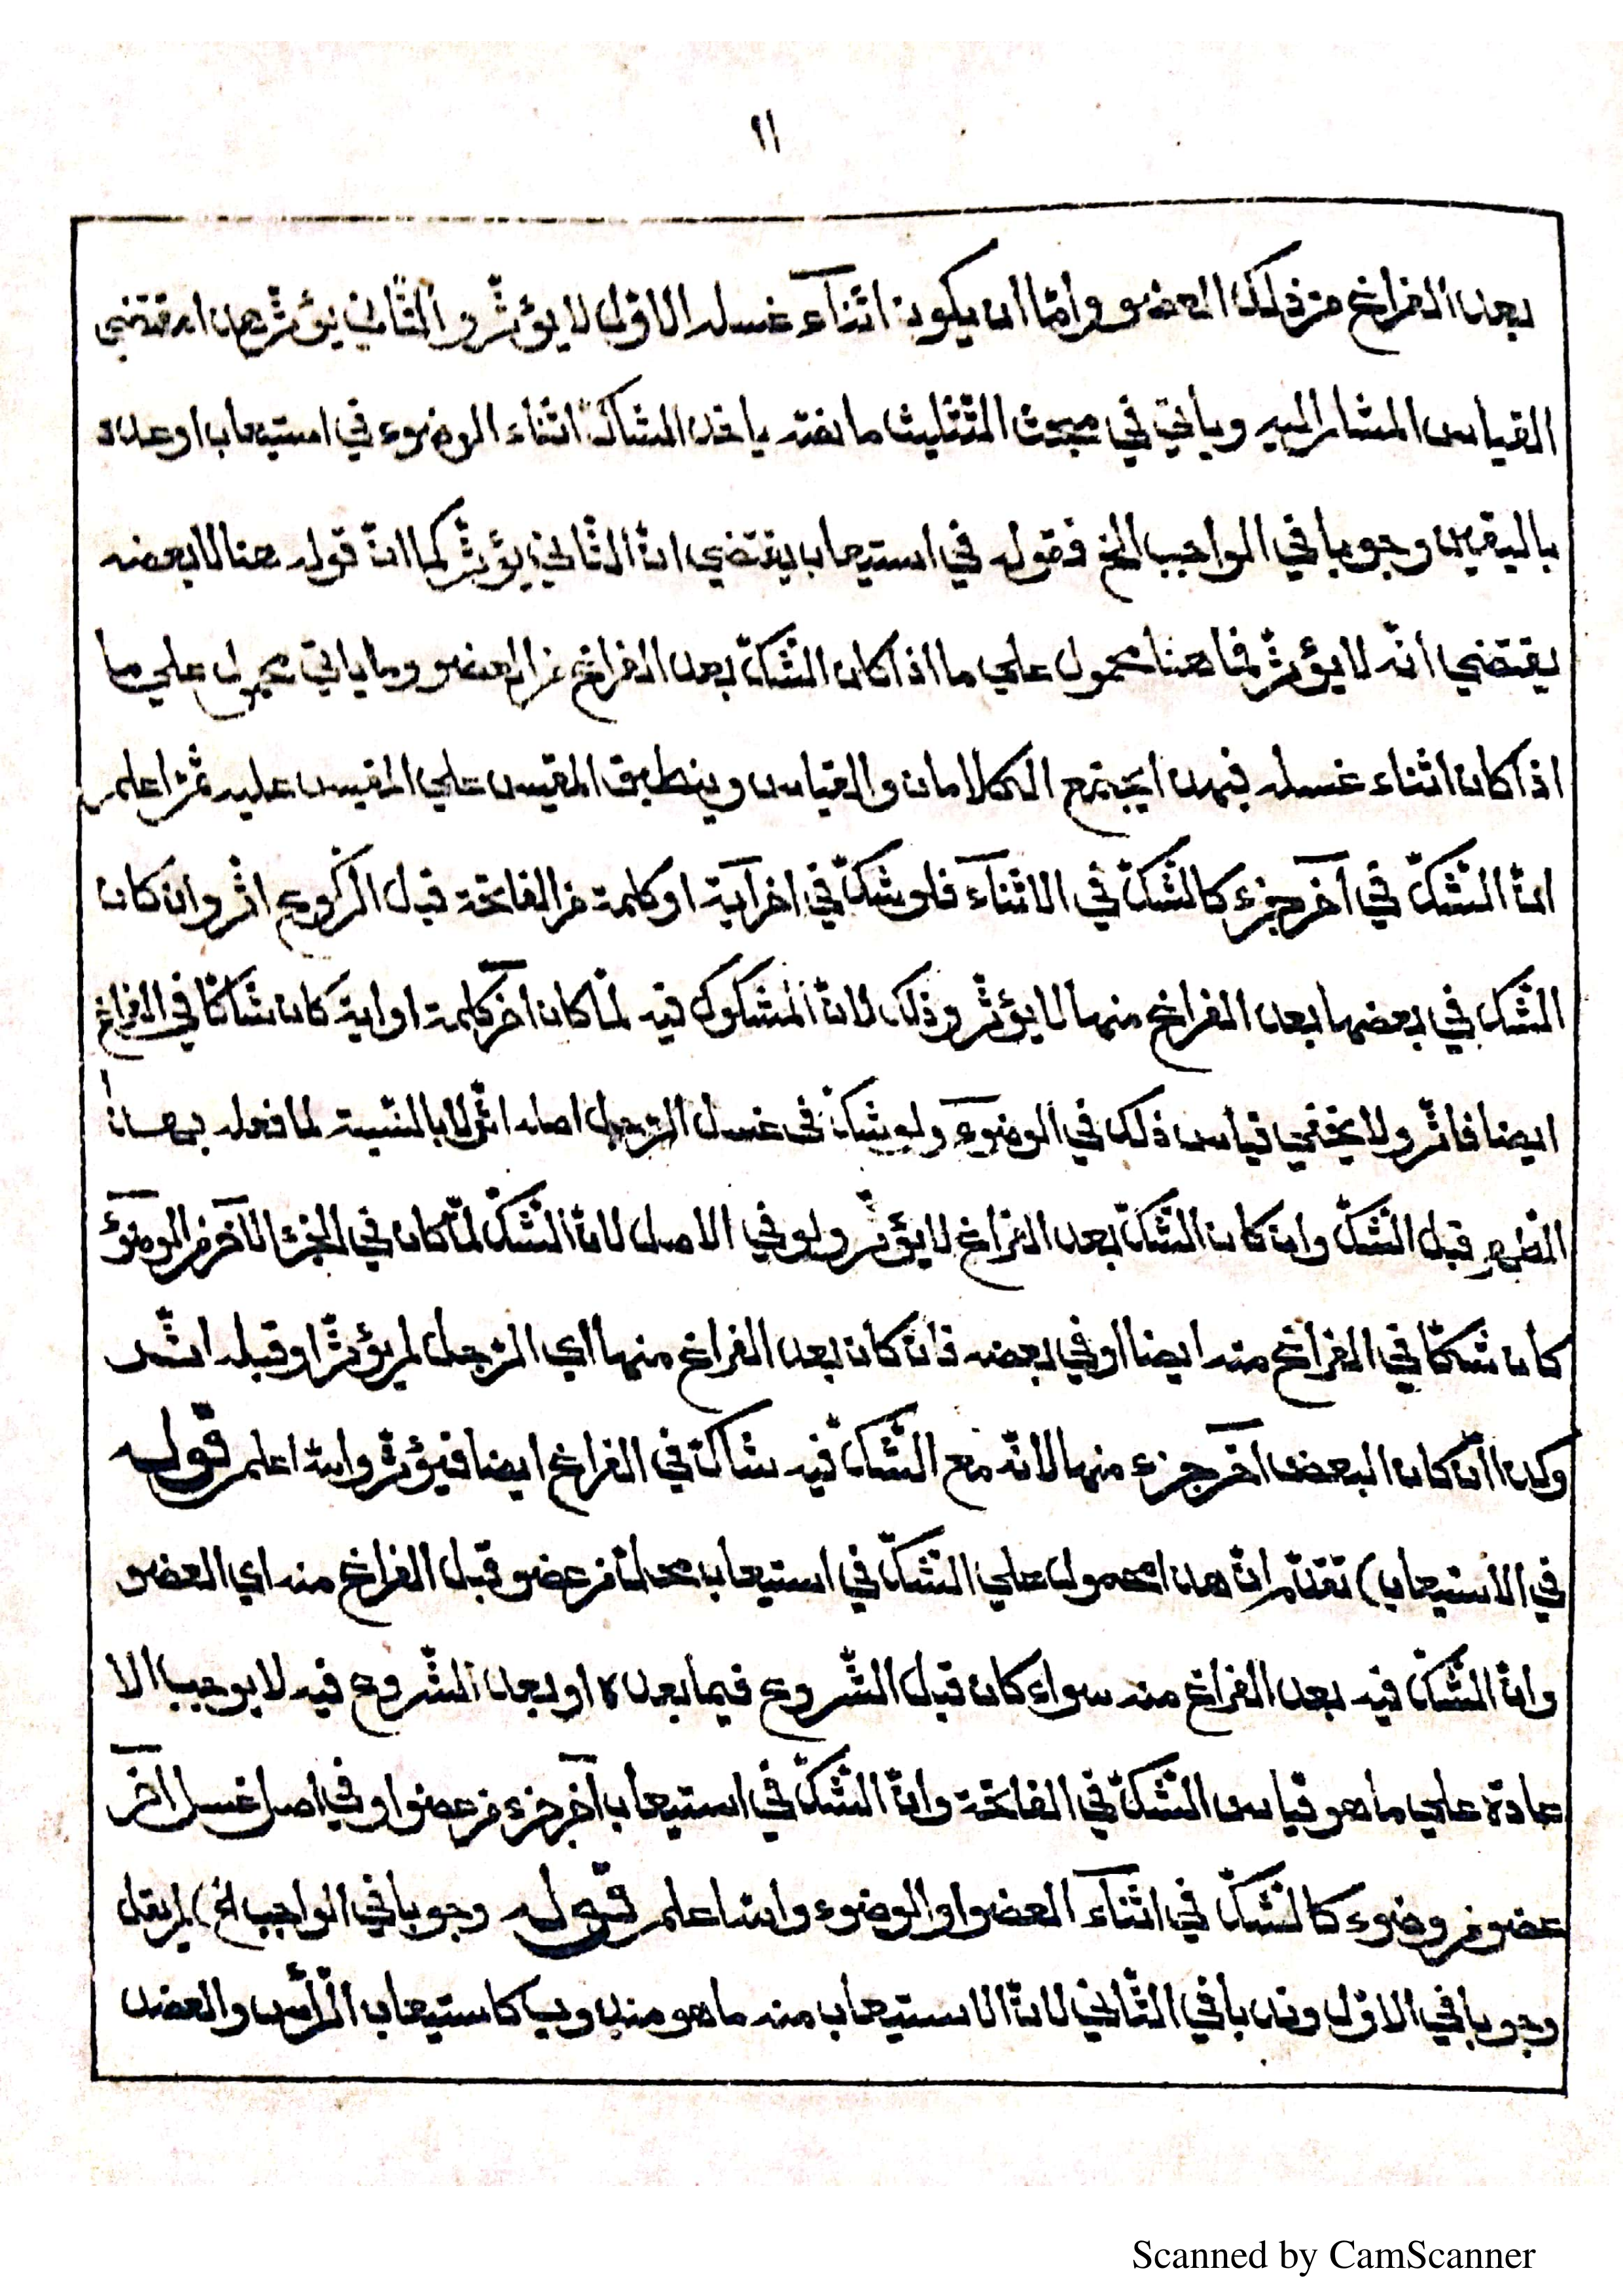 ١١
بعد الفراغ من ذلك العضو وامّا ان يكون اثنآء غسله الاوّل لا يؤثّر والثّاني يؤثّر هذا مقتضي
القياس المشار اليه وياتي في مبحث التّثليث ما نصّه ياخذ الشاكّ اثناء الوضوء في استيعاب او عدد
باليقين وجوبا في الواجب الخ فقوله في استيعاب يقتضي انّ الثّاني يؤثّر كما انّ قوله هنا لا بعضه
يقتضي انّه لا يؤثّر فما هنا محمول علي ما اذا كان الشّكّ بعد الفراغ من العضو وما ياتي محمول علي ما
اذا كان اثناء غسله فبهذا يجتمع الكلامان والقياس وينطبق المقيس علي المقيس عليه ثمّ اعلم
انّ الشّكّ في آخر جزء كالشّكّ في الاثنآء فلو شكّ في اخر آية او كلمة من الفاتحة قبل الرّكوع اثّر وان كان
الشّك في بعضها بعد الفراغ منها لا يؤثّر وذلك لانّ المشكوك فيه لمّا كان آخر كلمة او اية كان شاكّا في الفراغ
ايضا فاثّر ولا يخفي قياس ذلك في الوضوء ولو شكّ في غسل الرّجل اصله اثّر لا بالنّسبة لما فعله بهـ
الطّهر قبل الشّكّ وان كان الشّكّ بعد الفراغ لا يؤثّر ولو في الاصل لانّ الشّكّ لمّا كان في الجزء الآخر من الوضوء
كان شكّا في الفراغ منه ايضا او في بعضه فان كان بعد الفراغ منها اي الرّجل لم يؤثّر او قبله اثّر
وكذا ان كان البعض آخر جزء منها لانّه مع الشّكّ فيه شاكّ في الفراغ ايضا فيؤثّر والله اعلم قوله
في الاستيعاب) تقدّم انّ هذا محمول علي الشّكّ في استيعاب محلّ من عضو قبل الفراغ منه اي العضو
وانّ الشّكّ فيه بعد الفراغ منه سواء كان قبل الشّروع فيما بعده او بعد الشّروع فيه لا يوجب الا
عادة علي ما هو قياس الشّكّ في الفاتحة وانّ الشّكّ في استيعاب آخر جزء من عضو او في اصل غسل آخر
عضو من وضوء كالشّكّ في اثنآء العضو او الوضوء والله اعلم قوله وجوبا في الواجب الخ) لم يقل
وجوبا في الاوّل وندبا في الثّاني لانّ الاستيعاب منه ما هو مندوب كاستيعاب الرّأس والعضد
Scanned by CamScanner